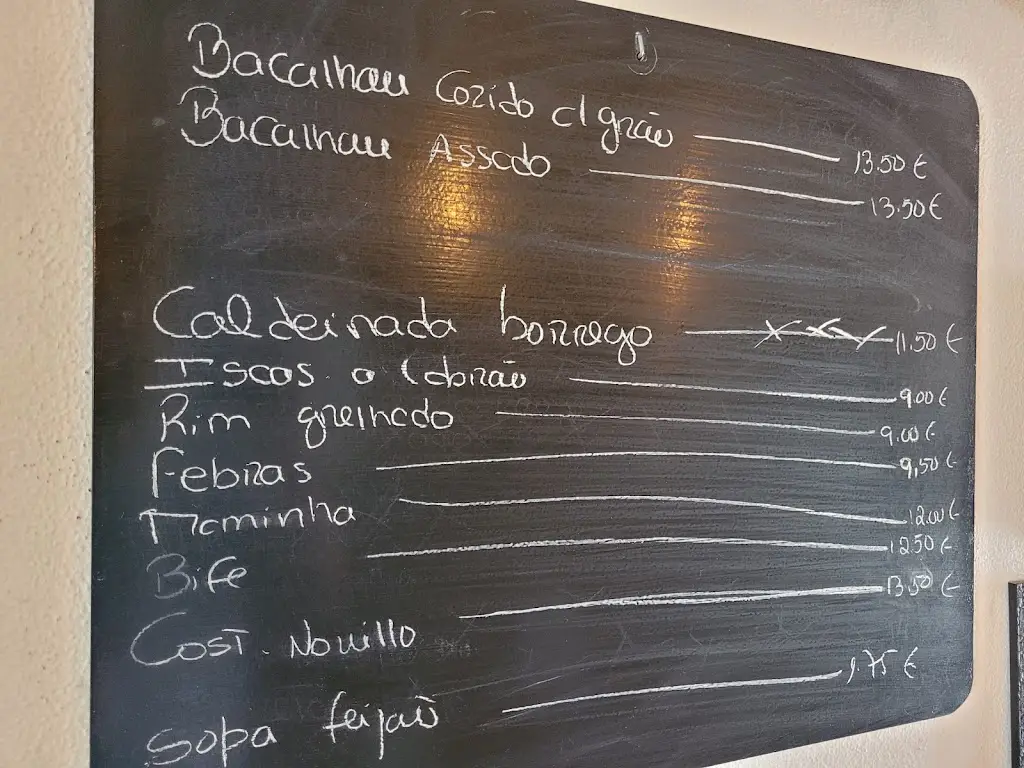 Bacalhau Cozido c/ grão 13.50 €
Bacalhau Assado 13.50 €
Caldeirada borrego xxx 11.50 €
Iscas a Cabirão 9.00 €
Rim grelhado 9.00 €
Febras 9,50 €
Maminha 12.00 €
Bife 12.50 €
Cost. Novillo 13.50 €
Sopa feijão 1,75 €